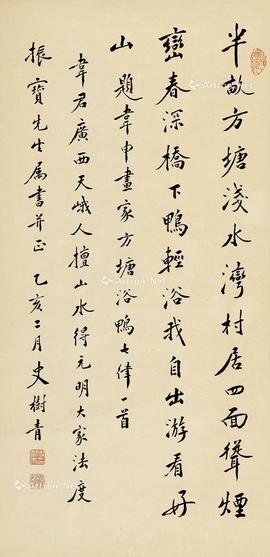 半畝方塘淺水灣村居四面聳煙
巒春深橋下鴨輕浴我自出游看好
山 題韋申畫家方塘浴鴨七律一首
韋君廣西天峨人擅山水得元明大家法度
振寶先生属書并正 乙亥二月史樹青